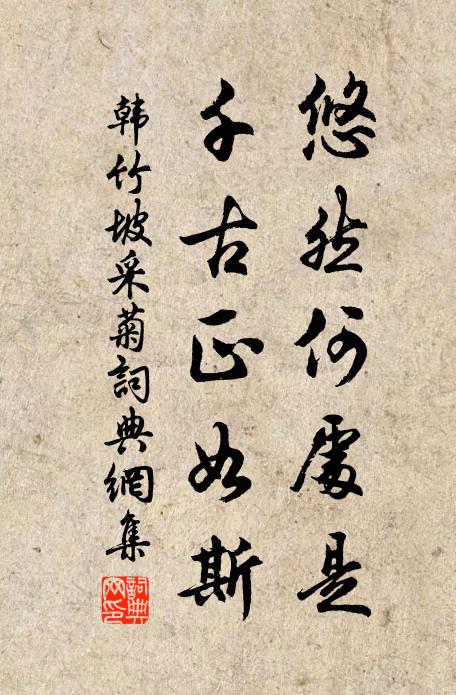 悠然何處是
千古正如斯
韩竹坡采菊詞典網集
詞典
网印